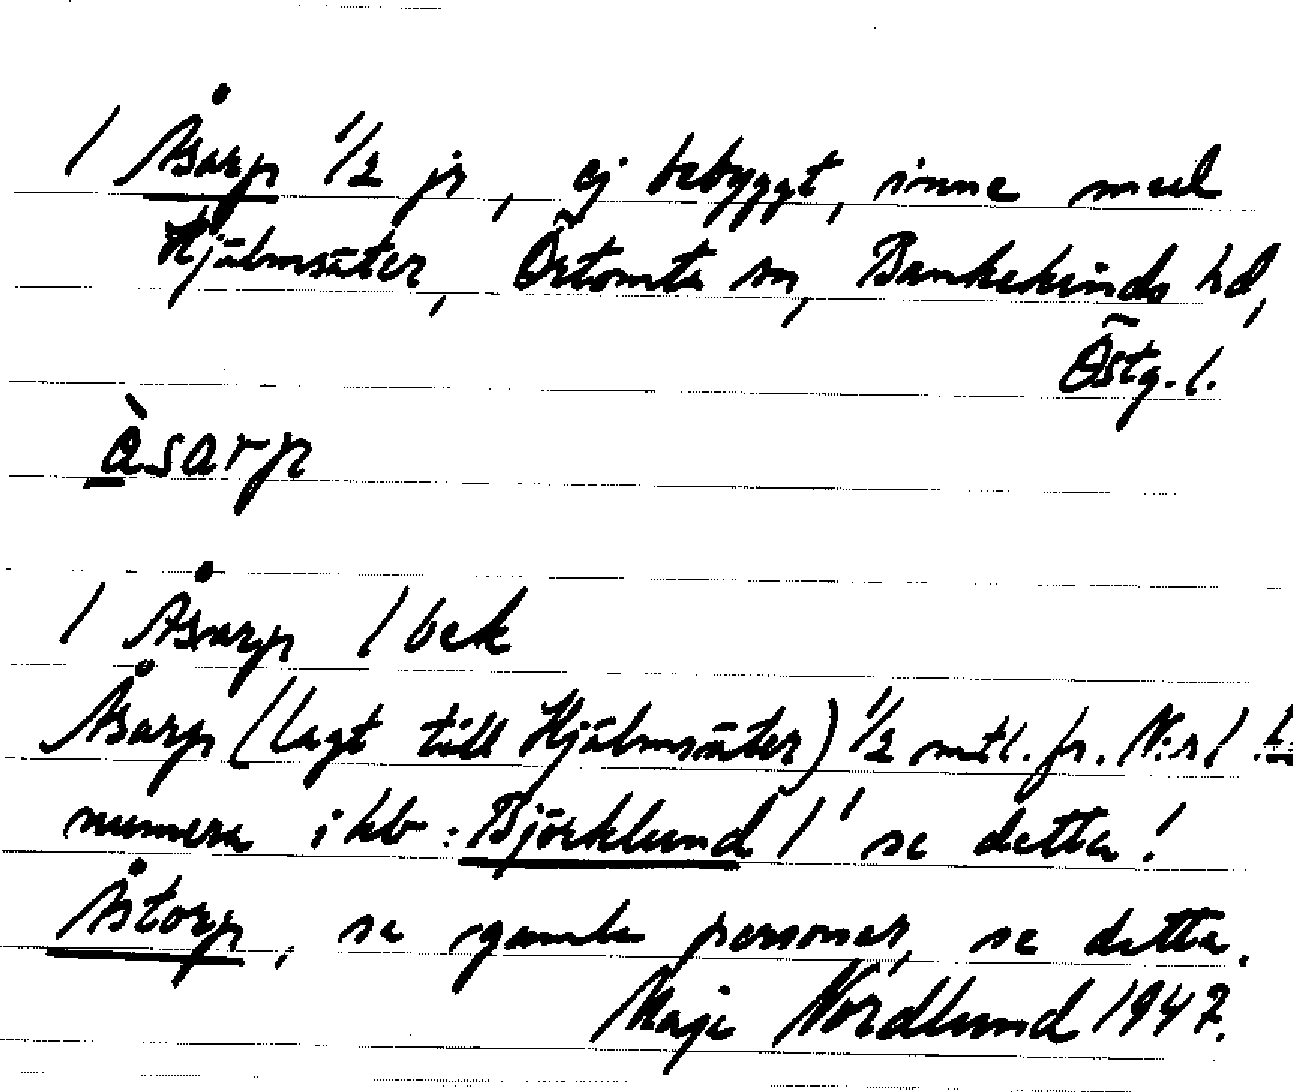 1 Åsarp 1/2 jr, ej bebyggt, inne med
Hjälmsäter, Örtomta sn, Bankekinds hd,
Östg. l.
àsarp
1 Åsarp 1 bek
Åsarp (lagt till Hjälmsäter) 1/2 mtl. fr. N:r 1
numera i kb: Björklund 1' se detta!
Åstorp, se gamla personer, se detta.
Maja Nordlund 1947.